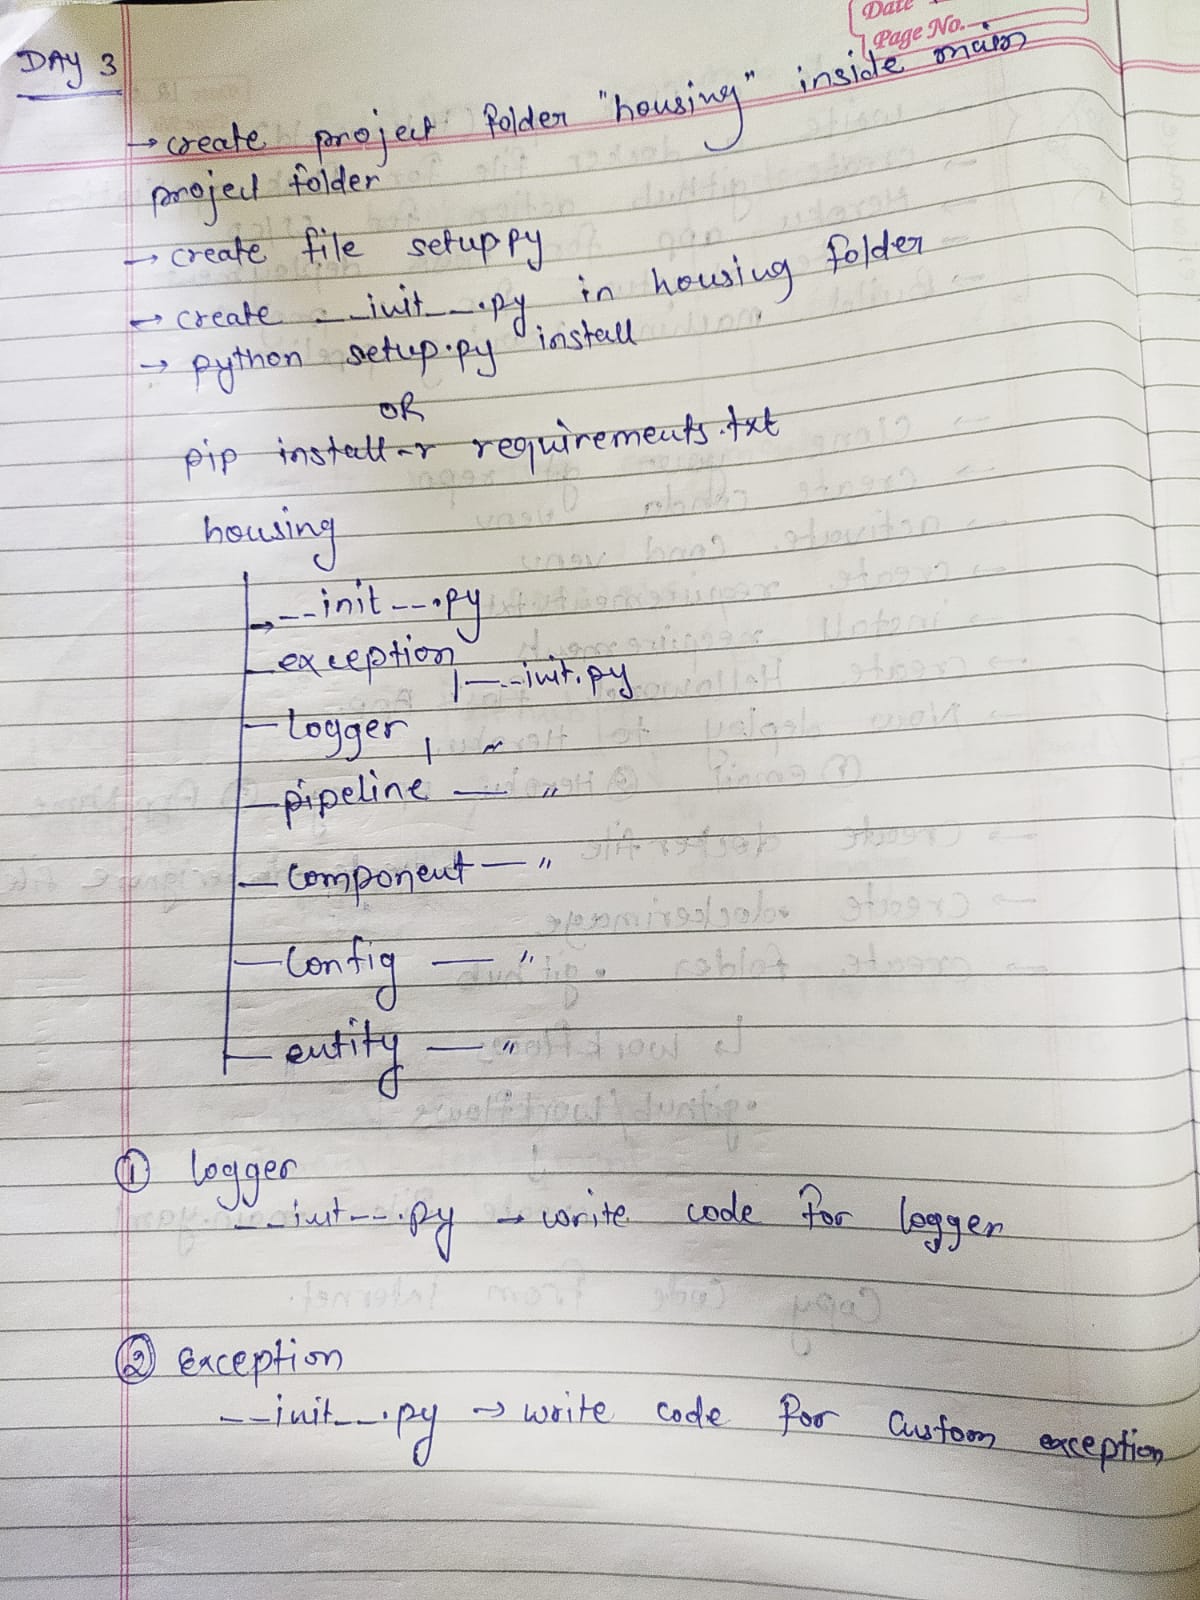 Date
Page No.
DAY 3
→ create project folder "housing" inside main
project folder
→ create file setup.py
→ create __init__.py in housing folder
→ python setup.py install
OR
pip install -r requirements.txt
housing
→ __init__.py
exception
|—__init.py
logger | "
pipeline — "
component — "
config — "
entity — "
① logger
__init__.py → write code for logger
② exception
__init__.py → write code for custom exception